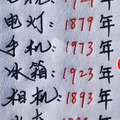 电灯:1879年
手机:1973年
冰箱:1923年
相机:1893年